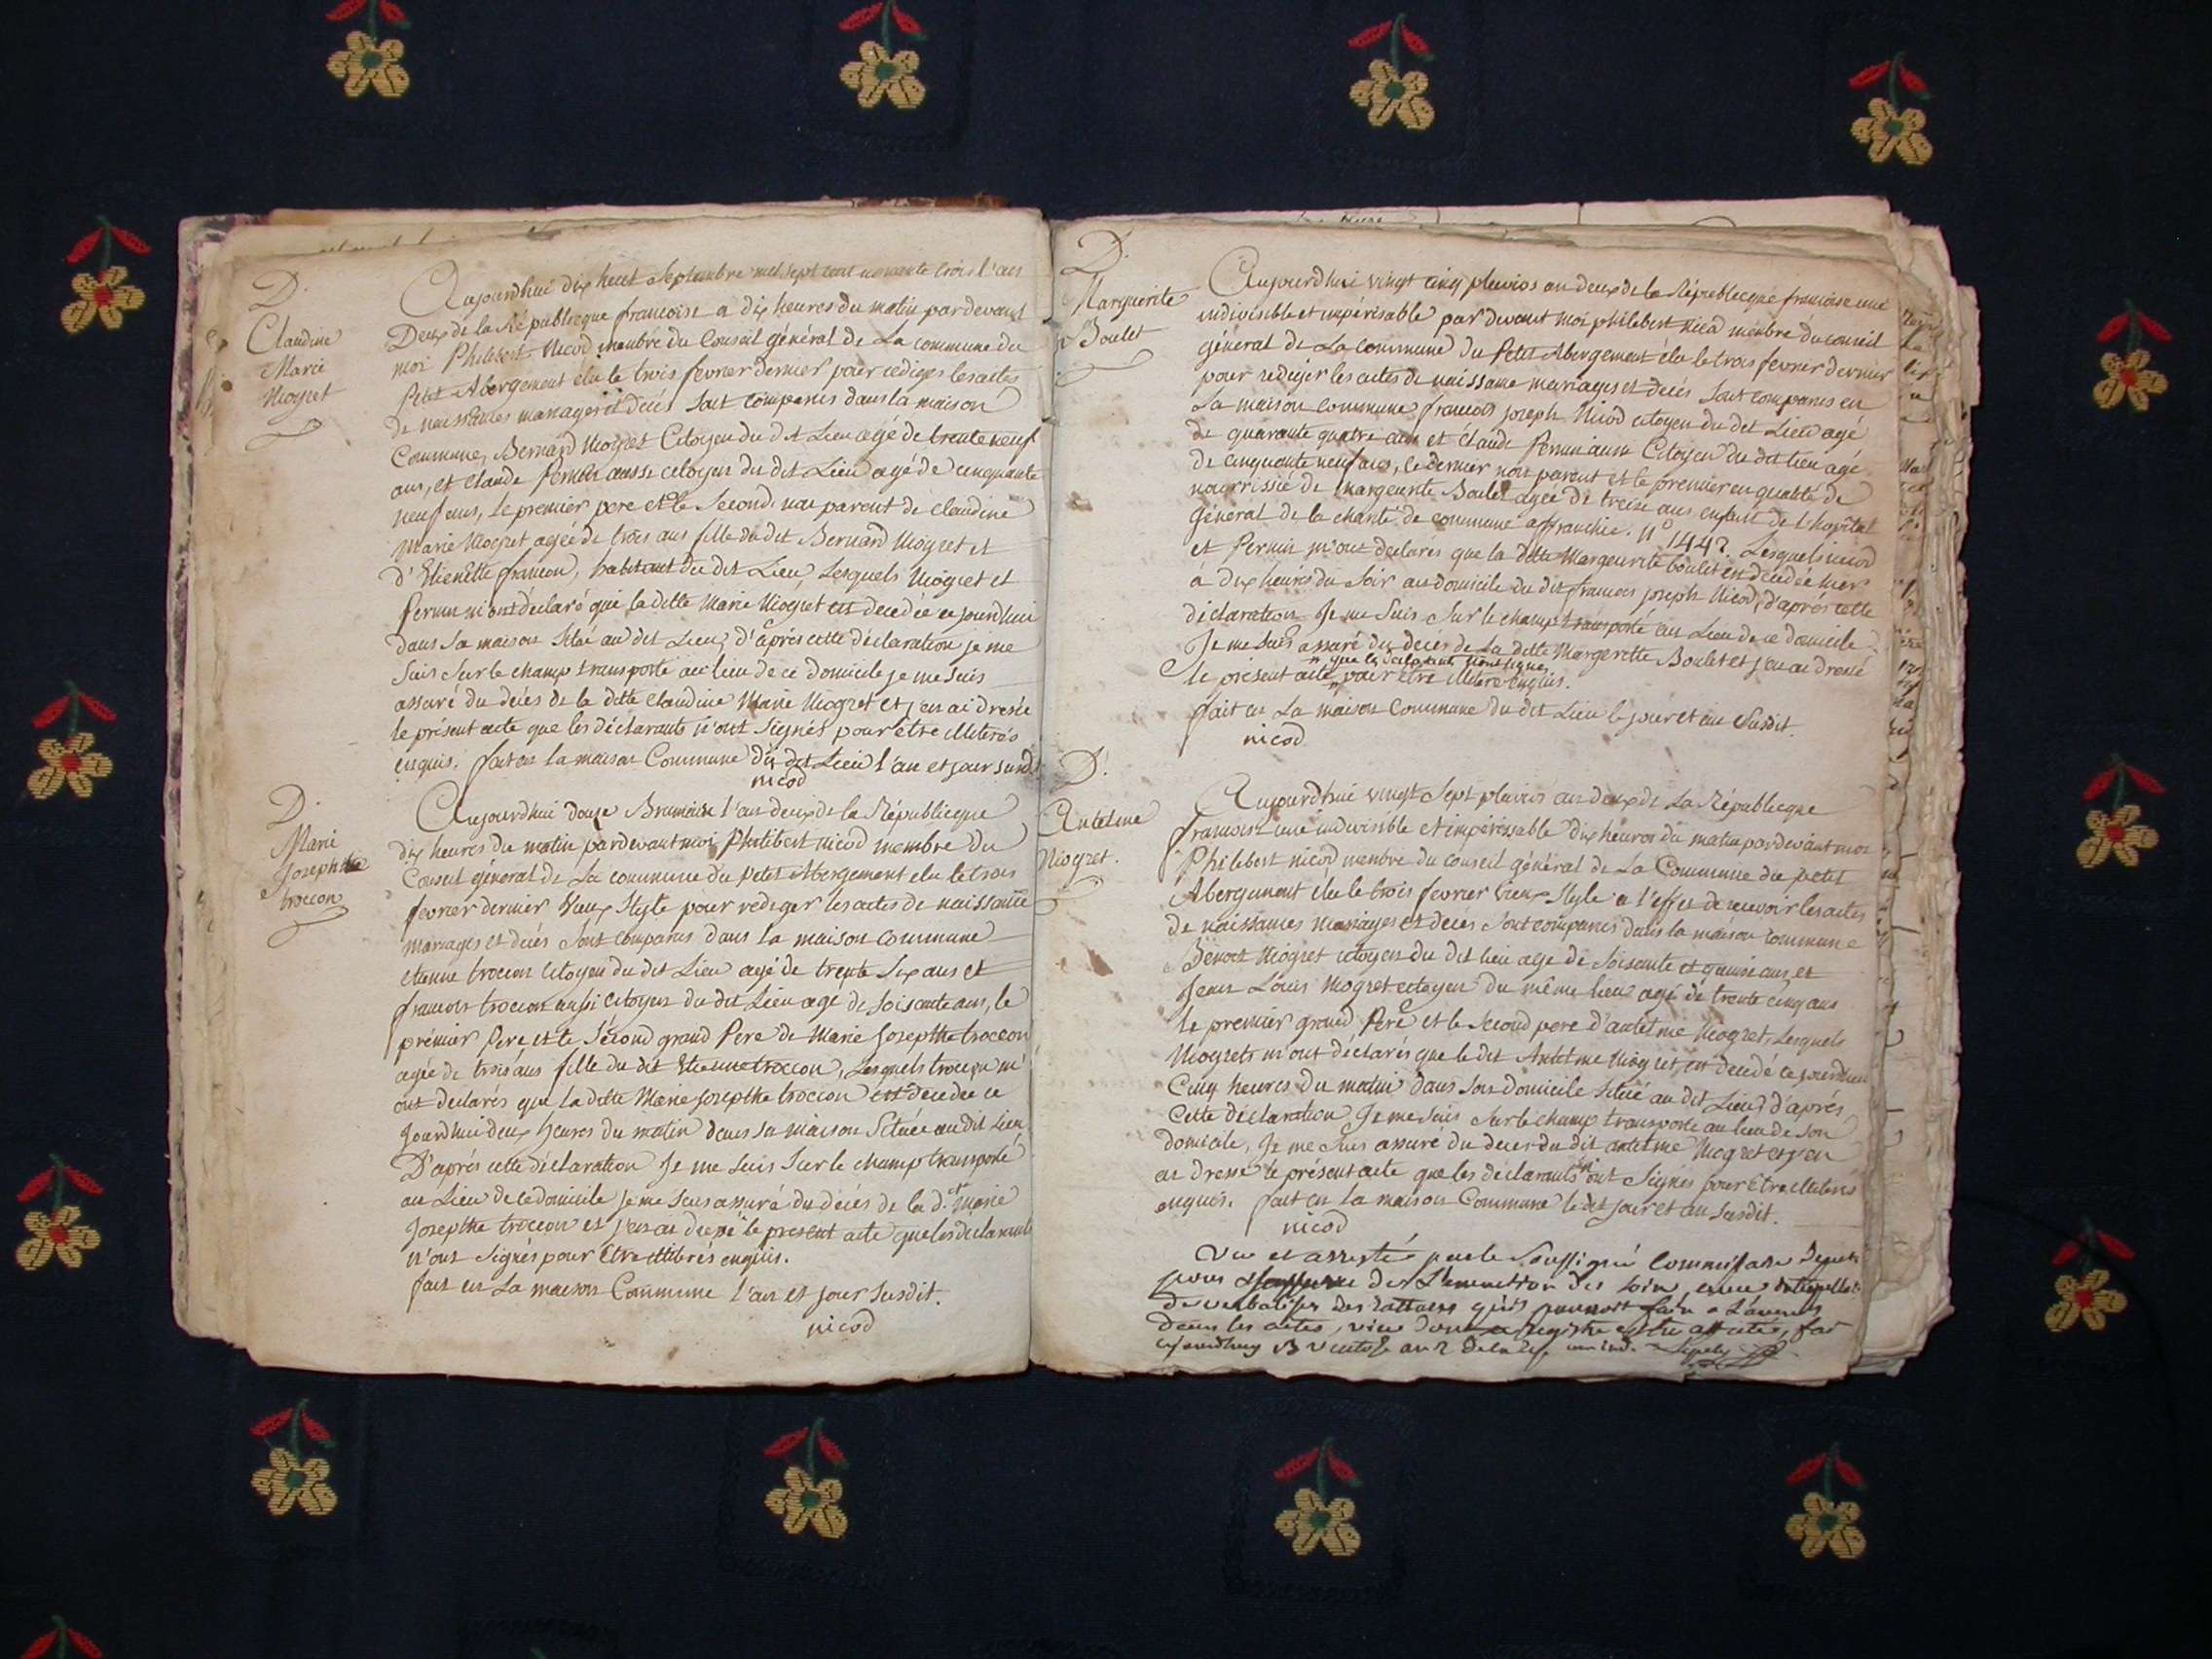 D.
Claudine
Marie
Niogret
Aujourdhui dix huit Septembre mil sept cent nonante trois l'an
Deux de la République francoise a dix heures du matin pardevant
moi Philibert Nicod membre du Conseil général de La commune du
Petit Abergement élu le trois fevrier dernier pour rediger les actes
de naissances mariages et décés sont comparus dans la maison
Commune, Bernard Niogret Citoyen du dit Lieu agé de trente neuf
ans, et Claude Pernin aussi citoyen du dit Lieu agé de cinquante
neuf ans, Le premier pere et le Second non parent de Claudine
Marie Niogret agée de trois ans fille du dit Bernard Niogret et
d'Etienette francon, habitant du dit Lieu, Lesquels Niogret et
Pernin m'ont déclaré que la ditte Marie Niogret est decedée ce jourdhui
dans sa maison Situé au dit Lieu, d'après cette déclaration je me
suis sur le champ transporté au lieu de ce domicile je me suis
assuré du décés de la ditte Claudine Marie Niogret et j'en ai dressé
le présent acte que les déclarants n'ont Signés pour être illiterés
enquis. fait en la maison Commune du dit Lieu l'an et jour susdit
nicod
D.
Marie
Josephtte
troccon
Aujourdhui douze Brumaire l'an deux de la République
dix heures du matin pardevant moi Philibert nicod membre du
Conseil général de La commune du petit Abergement elu le trois
fevrier dernier Vieux Style pour rediger les actes de naissance
mariages et décés sont comparus dans la maison commune
etienne troccon Citoyen du dit Lieu agé de trente Six ans et
francois troccon aussi Citoyen du dit Lieu age de soisante ans, le
prémier Pere et le Sécond grand Pere de Marie Josephtte troccon
agée de trois ans fille du dit Etienne troccon, Lesquels troccon m'
ont declarés que la ditte Marie Josephtte troccon est decedée ce
Jourdhui deux heures du matin dans sa maison Située au dit Lieu
D'après cette déclaration Je me suis Sur le champ transporté
au Lieu de ce domicile je me suis assuré du décés de la d.te Marie
Josephtte troccon et j'en ai dressé le present acte que les declarants
n'ont Signés pour Etre illiterés enquis.
fait en La maison Commune l'an et jour susdit.
nicod
D.
Marguerite
Boulet
Aujourdhui vingt cinq pluvios an deux de la République francoise une
indivisible et impérisable par devant moi philibert nicod membre du conseil
général de La Commune du Petit Abergement élu le trois fevrier dernier
pour rediger les actes de naissance mariages et décés sont comparus en
La maison commune francois joseph Nicod citoyen du dit Lieu agé
de quarante quatre ans et Claude Pernin aussi Citoyen du dit lieu agé
de cinquante neuf ans, le dernier non parent et le premier en qualité de
nourrissié de Margeurite Boulet agée de treise ans enfant de l'hopital
général de la charité de commune affranchie. N° 1447. Lesquels nicod
et Pernin m'ont declarés que la ditte Margeurite boulet est décédée hier
à dix heures du Soir au domicile du dit francois joseph Nicod, d'après cette
déclaration Je me suis Sur le champ transporté au Lieu de ce domicile
Je me suis assuré du décés de La ditte Margerette Boulet et j'en ai dressé
le présent acte que les declarants n'ont signé pour etre illiteré enquis.
fait en La maison Commune du dit Lieu le jour et an Susdit.
nicod
D.
Antelme
Niogret.
Aujourdhui vingt Sept pluvios an deux de La République
francoise une indivisible et impérissable dix heures du matin pardevant moi
Philibert nicod membre du conseil général de La Commune du petit
Abergement élu le trois fevrier vieux Style a l'effet de recevoir les actes
de naissances mariages et décés sont comparus dans la maison commune
Benoit Niogret citoyen du dit lieu age de Soisante et quinse ans, et
Jean Louis Niogret citoyen du même lieu agé de trente cinq ans
le premier grand Pere et le second pere d'antelme Niogret, Lesquels
Niogrets m'ont déclarés que le dit Antelme Niogret est decedé ce jourdhui
Cinq heures du matin dans son domicile Situé au dit Lieu, d'après
Cette déclaration Je me suis Sur le champ transporté au lieu de son
domicile, Je me suis assuré du deces du dit antelme Niogret et j'en
ai dressé le présent acte que les declarants n'ont Signés pour Etre illiterés
enquis. fait en la maison Commune le dit jour et an susdit.
nicod
Vu et arresté par le Soussigné Commissaire
pour de L'
de verbaliser des
dans les actes, registre
13 Ventose an 2